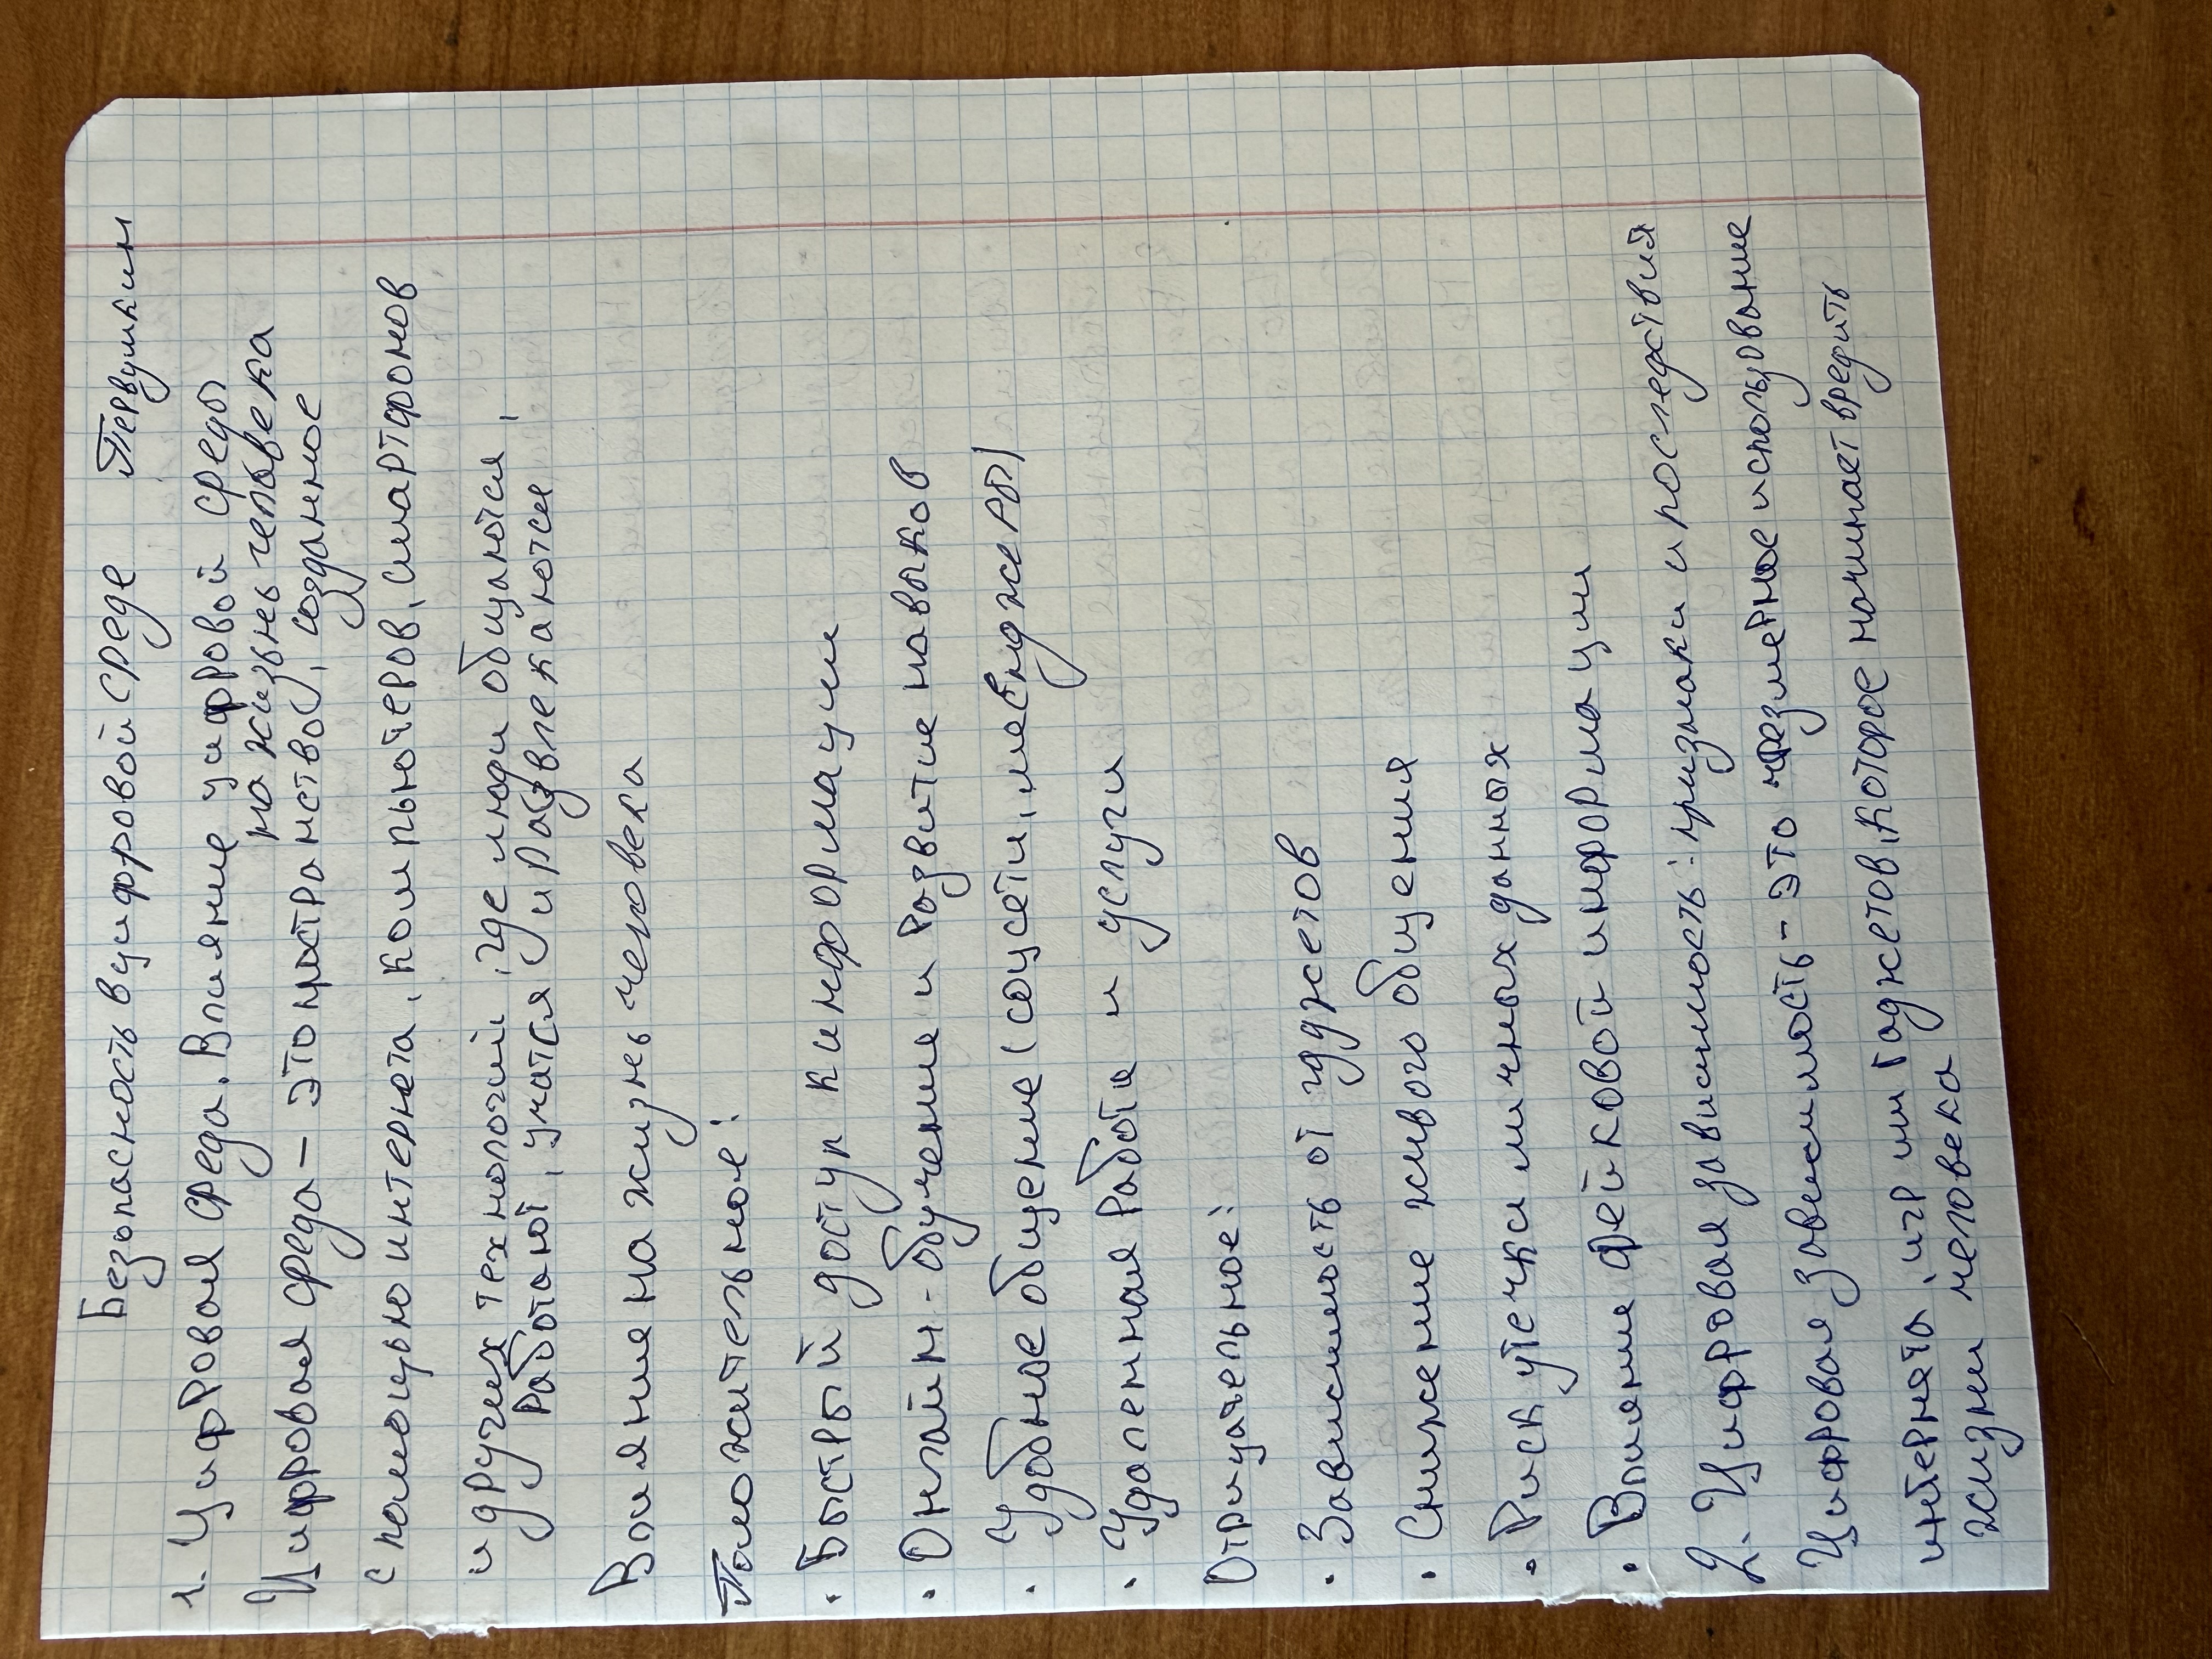 Безопасность в цифровой среде Первушкин
1. Цифровая среда. Влияние цифровой среды
на жизнь человека
Цифровая среда – это пространство, созданное
с помощью интернета, компьютеров, смартфонов
и других технологий, где люди общаются,
работают, учатся и развлекаются
Влияние на жизнь человека
Положительное:
• Быстрый доступ к информации
• Онлайн-обучение и развитие навыков
• Удобное общение (соцсети, мессенджеры)
• Удаленная работа и услуги
Отрицательное:
• Зависимость от гаджетов
• Снижение живого общения
• Риск утечки личных данных
• Влияние фейковой информации
2. Цифровая зависимость: признаки и последствия
Цифровая зависимость – это чрезмерное использование
интернета, игр или гаджетов, которое начинает вредить
жизни человека